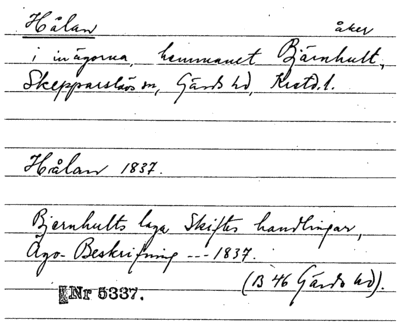 Hålan åker
i inägorna, hemmanet Bjärnhult,
Skepparslövs sn, Gärds hd, Krstd. l.
Hålan 1837.
Bjernhults laga Skiftes handlingar,
Ägo-Beskrifning --- 1837.
(B 46 Gärds hd).
Nr 5337.